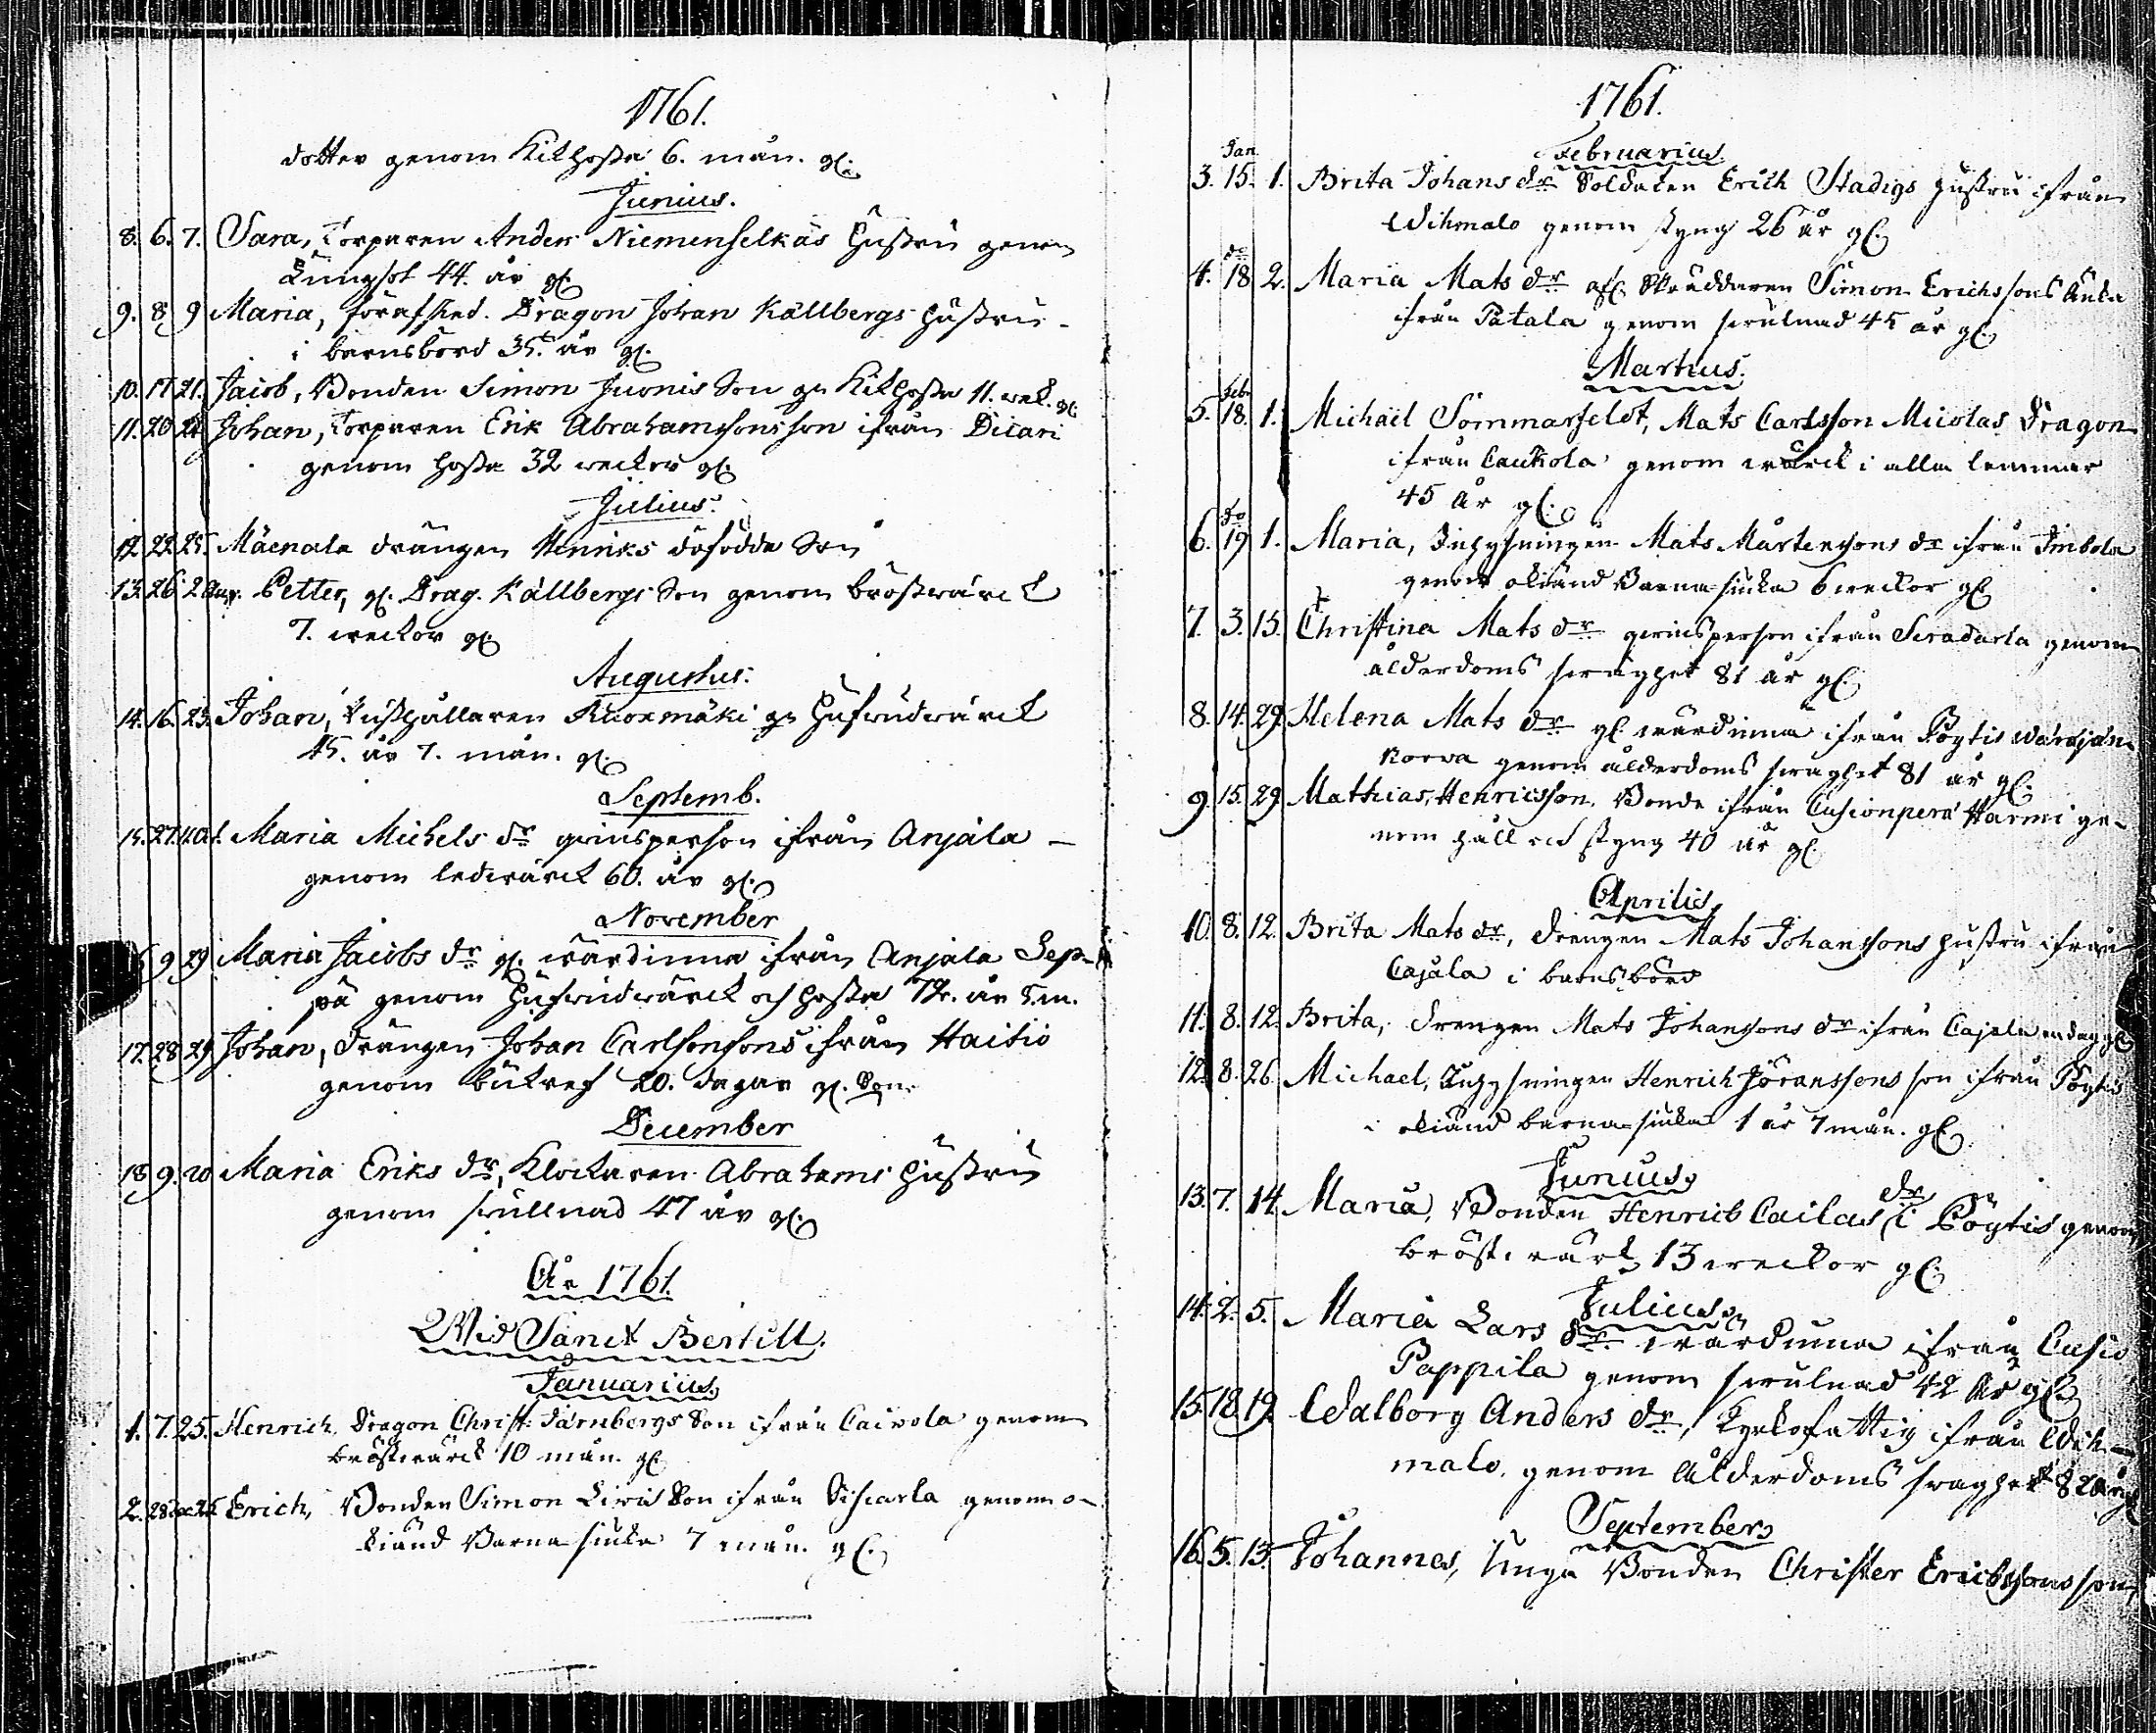 1761.
dotter genom Kikhosta 6. mån. gl.
Junius.
8. 6. 7. Sara, Torparen Anders Niemenselkäs hustru genom
Lungsot 44. år gl.
9. 8 9 Maria, förafsked. Dragon Johan Källbergs hustru
i barnsbörd 35. år gl.
10. 17 21. Jacob, Bonden Simon Juonis Son gn Kikhosta 11. wek. gl.
11. 20 24 Johan, Torparen Erik Abrahamssons son ifrån Dicari
genom hosta 32 weckor gl.
Julius.
12 22 25. Mäenala drängen Henriks döfödda Son
13. 26. 2 Aug. Petter, gl. Drag. Källbergs Son genom bröstwärck
7. weckor gl.
Augustus.
14. 16. 23. Johan, Kuoxmäki gn hufwudwärck
45. år 7. mån. gl.
Septemb.
15. 27. Maria Michels dr ifrån Anjala
genom ledwärck 60. år gl.
November
9 29 Maria Jacobs dr gl. wärdinna ifrån Anjala Sep-
pä genom hufwudwärck och hosta 72. år 5. m.
17. 28 29 Johan, drängen Johan Carlssons ifrån Haitio
genom bukref 20. dagar gl. Son.
December
18 9. 20 Maria Eriks dr, Klockaren Abrahams hustru
genom swullnad 47 år gl.
År 1761.
Wid Sanct Bertill.
Januarius.
1. 7. 25. Henrich, Dragon Christ. Järnbergs Son ifrån Cairola genom
bröstwärck 10 mån. gl.
2. 28 25 Erich, Bonden Simon Son ifrån genom o-
kiänd Barnasiuka 7 mån. gl.
1761.
Februarius
Jan
3. 15. 1. Brita Johans dr Soldaten Erich Stadigs hustru ifrån
Wihmalo genom styng 26 år gl.
do
4. 18 2. Maria Mats dr Skräddaren Simon Erichssons Änka
ifrån Patala genom swulnad 45 år gl.
Martius.
Feb.
5. 18. 1. Michaël Sommarfelot, Mats Carlsson Micolas Dragon
ifrån Caukola genom wärck i alla lemmar
45 år gl.
do
6. 19 1. Maria, Inhysningen Mats Mårtenssons dr ifrån Imbola
genom okiänd Barnasiuka 6 weckor gl.
7. 3. 15. Christina Mats dr ifrån genom
ålderdoms swaghet 81 år gl.
8. 14. 29. Helena Mats dr gl. wärdinna ifrån Pöytis
korva genom ålderdoms swaghet 81 år gl.
9. 15. 29. Mathias Henricsson Bonde ifrån Cusionperä Harmi ge-
nom håll och styng 40 år gl.
Aprilis
10. 8. 12. Brita Mats dr, drengen Mats Johanssons hustru ifrån
Cajala i barnsbörd
11. 8. 12. Brita, drengen Mats Johanssons dr ifrån Cajala en dag gl.
12. 8. 26. Michael, Inhysningen Henrich Jöranssons son ifrån Pöytis
i okiänd barnasiuka 1 år 7 mån. gl.
Junius
13. 7. 14. Maria, Bonden Henrich Cailas dr i Pöytis genom
bröstwärk 13 weckor gl.
Julius
14. 2. 5. Maria Lars dr wärdinna ifrån Cusio
Pappila genom swulnad 42 år gl.
15. 18. 19. Walborg Anders dr, kyrkofattig ifrån Wih-
malo genom ålderdoms swaghet 82 år gl.
September
16. 5. 13. Johannes, Unga Bonden Christer Erichssons son,